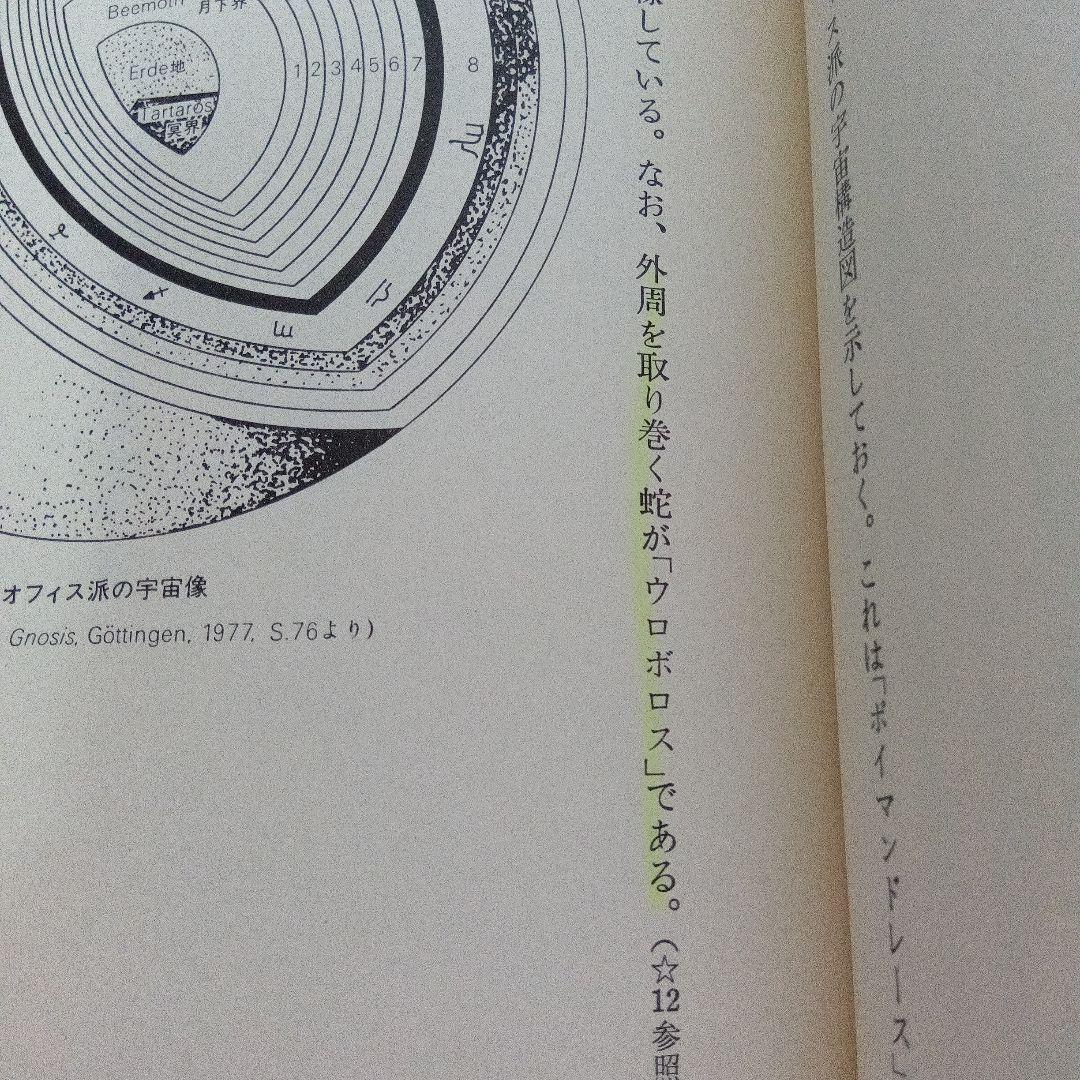 ス派の宇宙構造図を示しておく。これは「ポイマンドレース」
している。なお、外周を取り巻く蛇が「ウロボロス」である。(☆12参照
Beemoth 月下界
Erde地
Tartaros
冥界
1 2 3 4 5 6 7 8
オフィス派の宇宙像
Gnosis, Göttingen, 1977, S.76より)